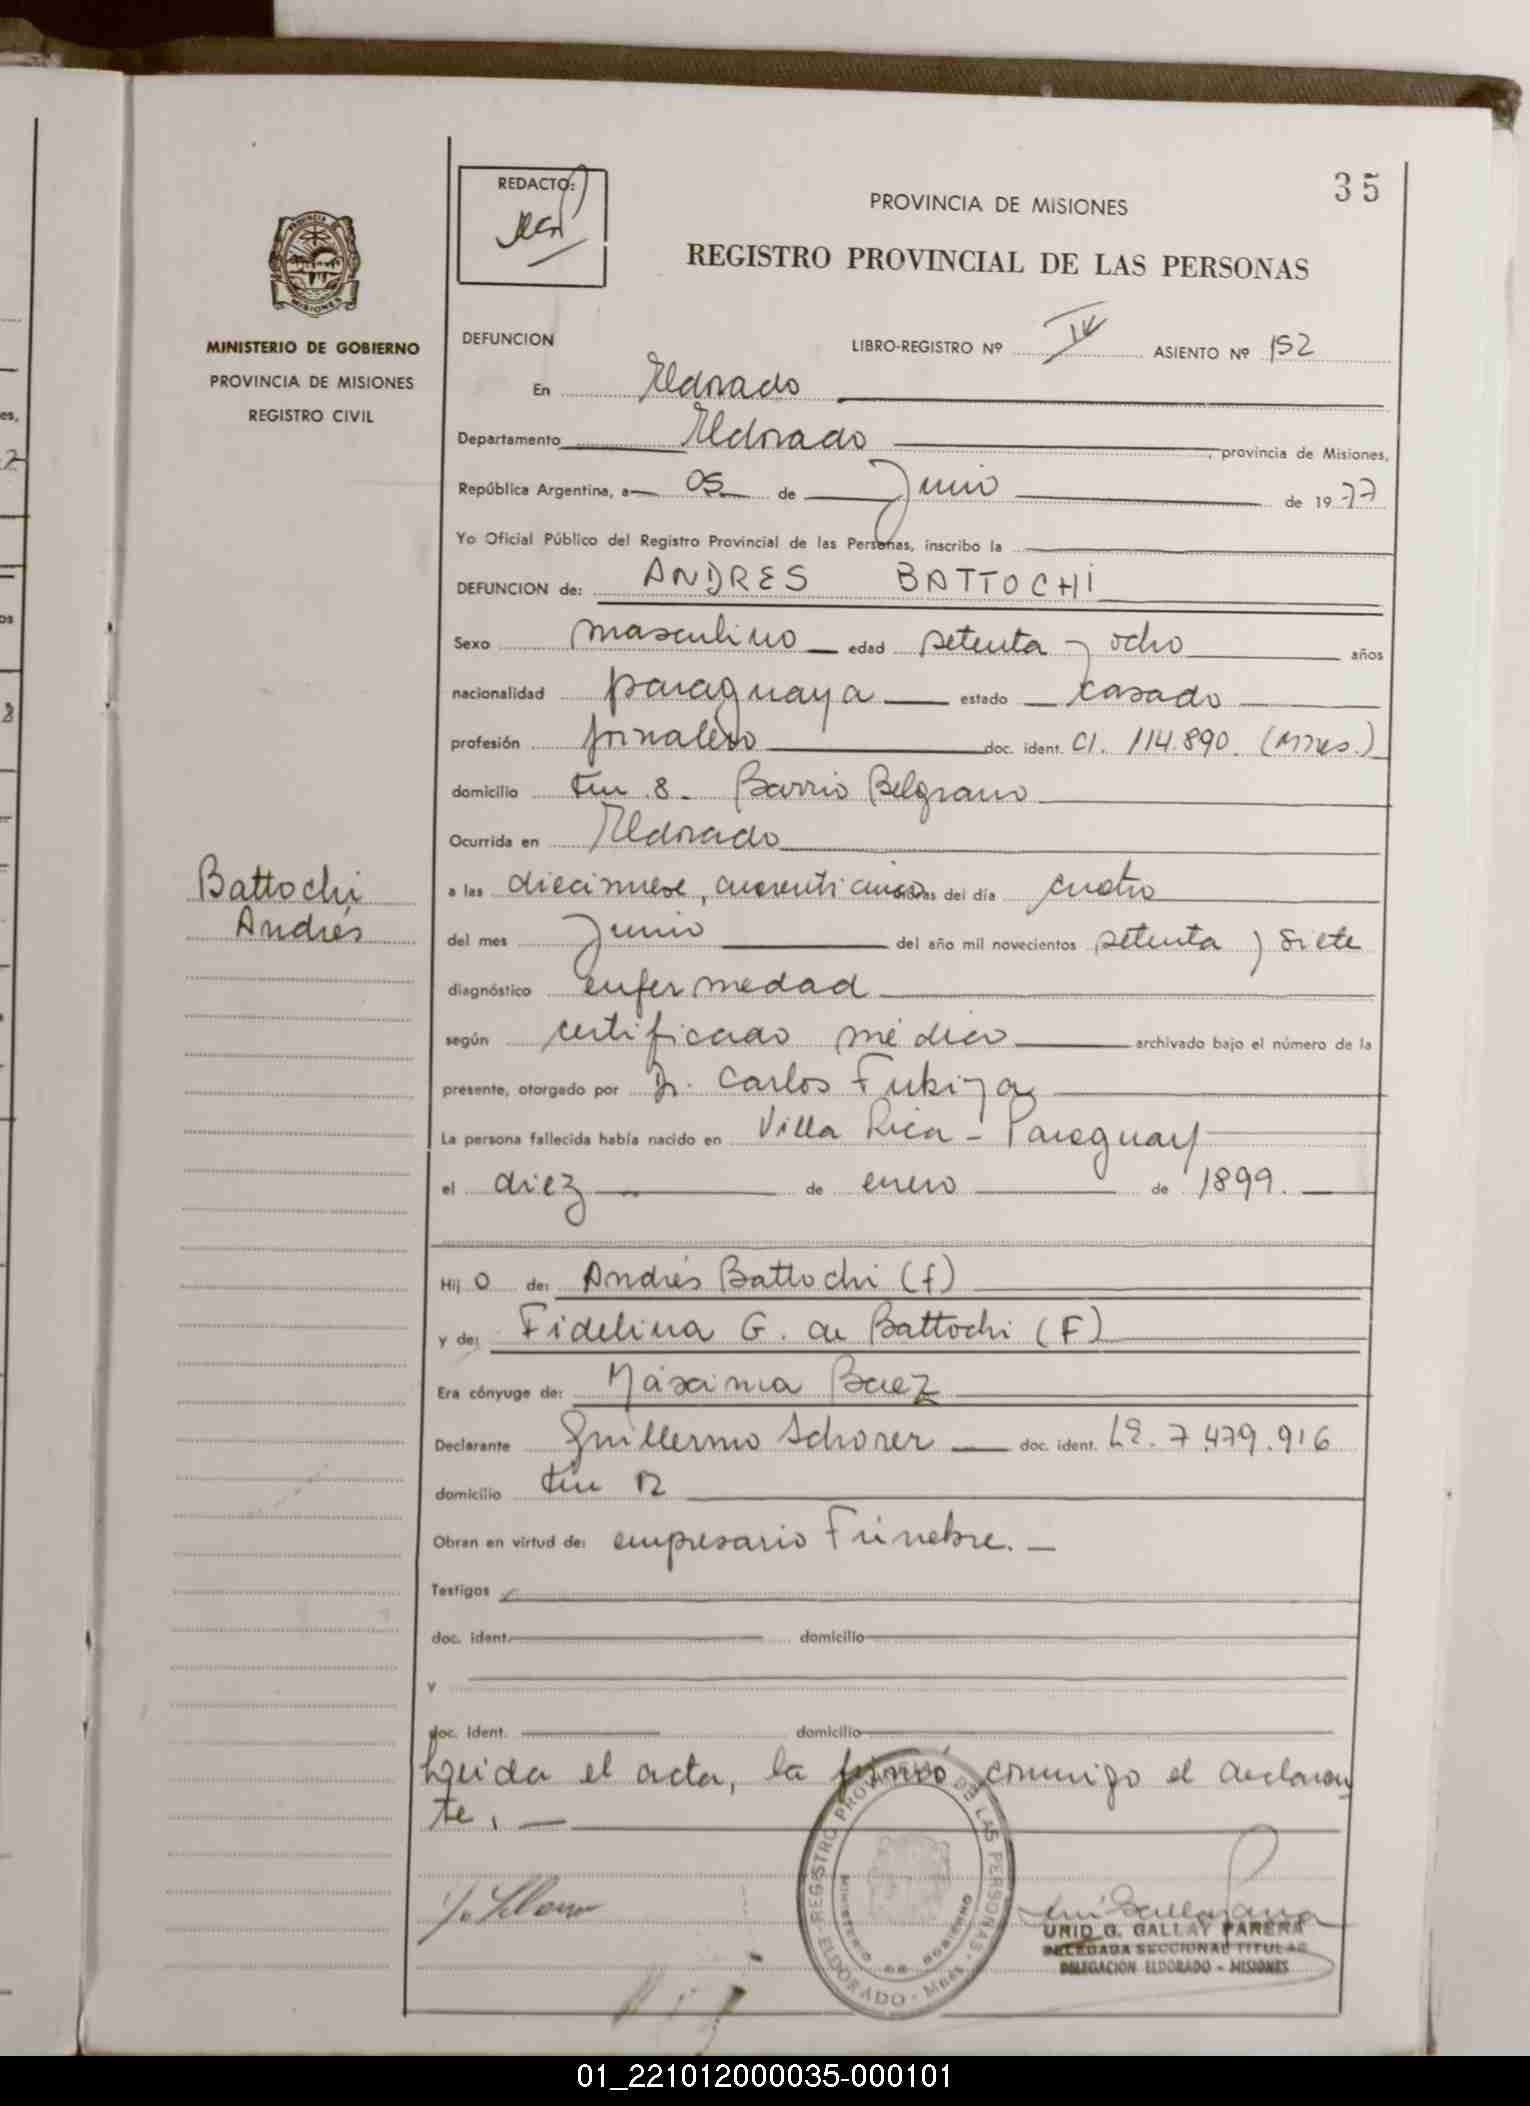 35
REDACTO:
PROVINCIA DE MISIONES
REGISTRO PROVINCIAL DE LAS PERSONAS
PROVINCIA
MISIONES
MINISTERIO DE GOBIERNO
PROVINCIA DE MISIONES
REGISTRO CIVIL
DEFUNCION LIBRO-REGISTRO Nº IV ASIENTO Nº 152
En Eldorado
Departamento Eldorado, provincia de Misiones,
República Argentina, a 05 de Junio de 1977
Yo Oficial Público del Registro Provincial de las Personas, inscribo la
DEFUNCION de: ANDRES BATTOCHI
Sexo masculino edad setenta y ocho años
nacionalidad paraguaya estado casado
profesión jornalero doc. ident. CI. 114.890. (Mnes.)
domicilio km 8- Barrio Belgrano
Ocurrida en Eldorado
Battochi
Andrés
a las diecinueve, cuarenticinco horas del día cuatro
del mes Junio del año mil novecientos setenta y siete
diagnóstico enfermedad
según certificado médico archivado bajo el número de la
presente, otorgado por Dr. Carlos Fukiya
La persona fallecida había nacido en Villa Rica - Paraguay
el diez de enero de 1899.
Hij o de: Andrés Battochi (f)
y de: Fidelina G. de Battochi (F)
Era cónyuge de: Máxima Baez
Declarante Guillermo Schorer doc. ident. LE. 7.479.916
domicilio km 12
Obran en virtud de: empresario Fúnebre.-
Testigos
doc. ident. domicilio
y
doc. ident. domicilio
Leída el acta, la firmó conmigo el declaran
te.-
REGISTRO PROVINCIAL DE LAS PERSONAS
MINISTERIO DE GOBIERNO
ELDORADO - Mnes.
URID G. GALLAY PARERA
DELEGADA SECCIONAL TITULAR
DELEGACION ELDORADO - MISIONES
01_221012000035-000101